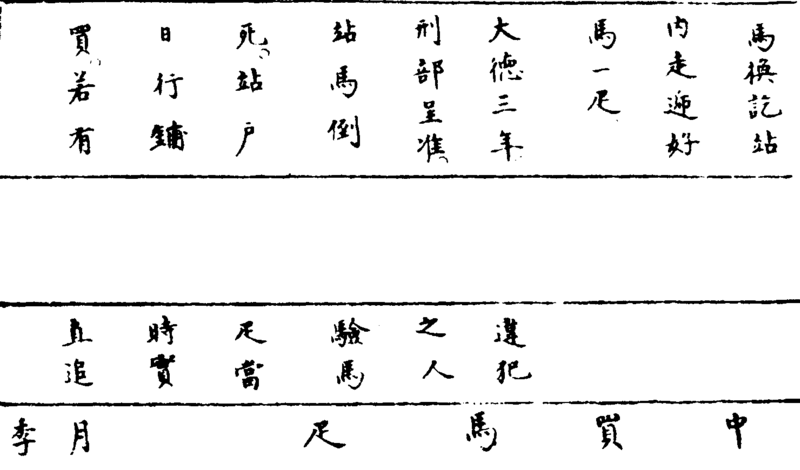 馬換訖站
内走逓好
馬一疋
大德三年
刑部呈准
站馬倒
死站户
日行鋪
買若有
違犯
之人
驗馬
疋當
時實
直追
中買馬疋
月
季